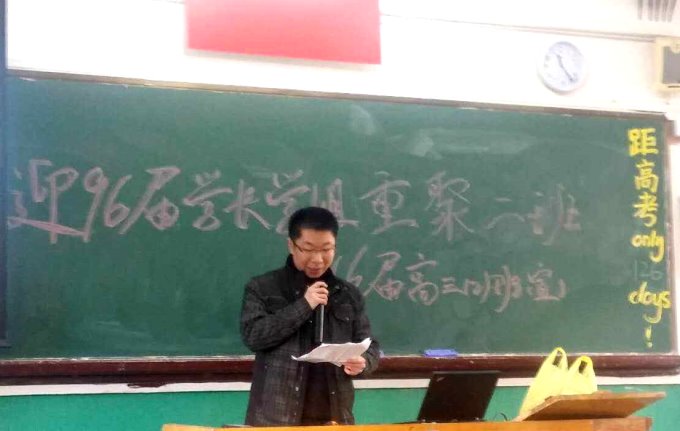 迎96届学长学姐重聚二班
16届高三 班宣
距
高
考
only
126
days
!